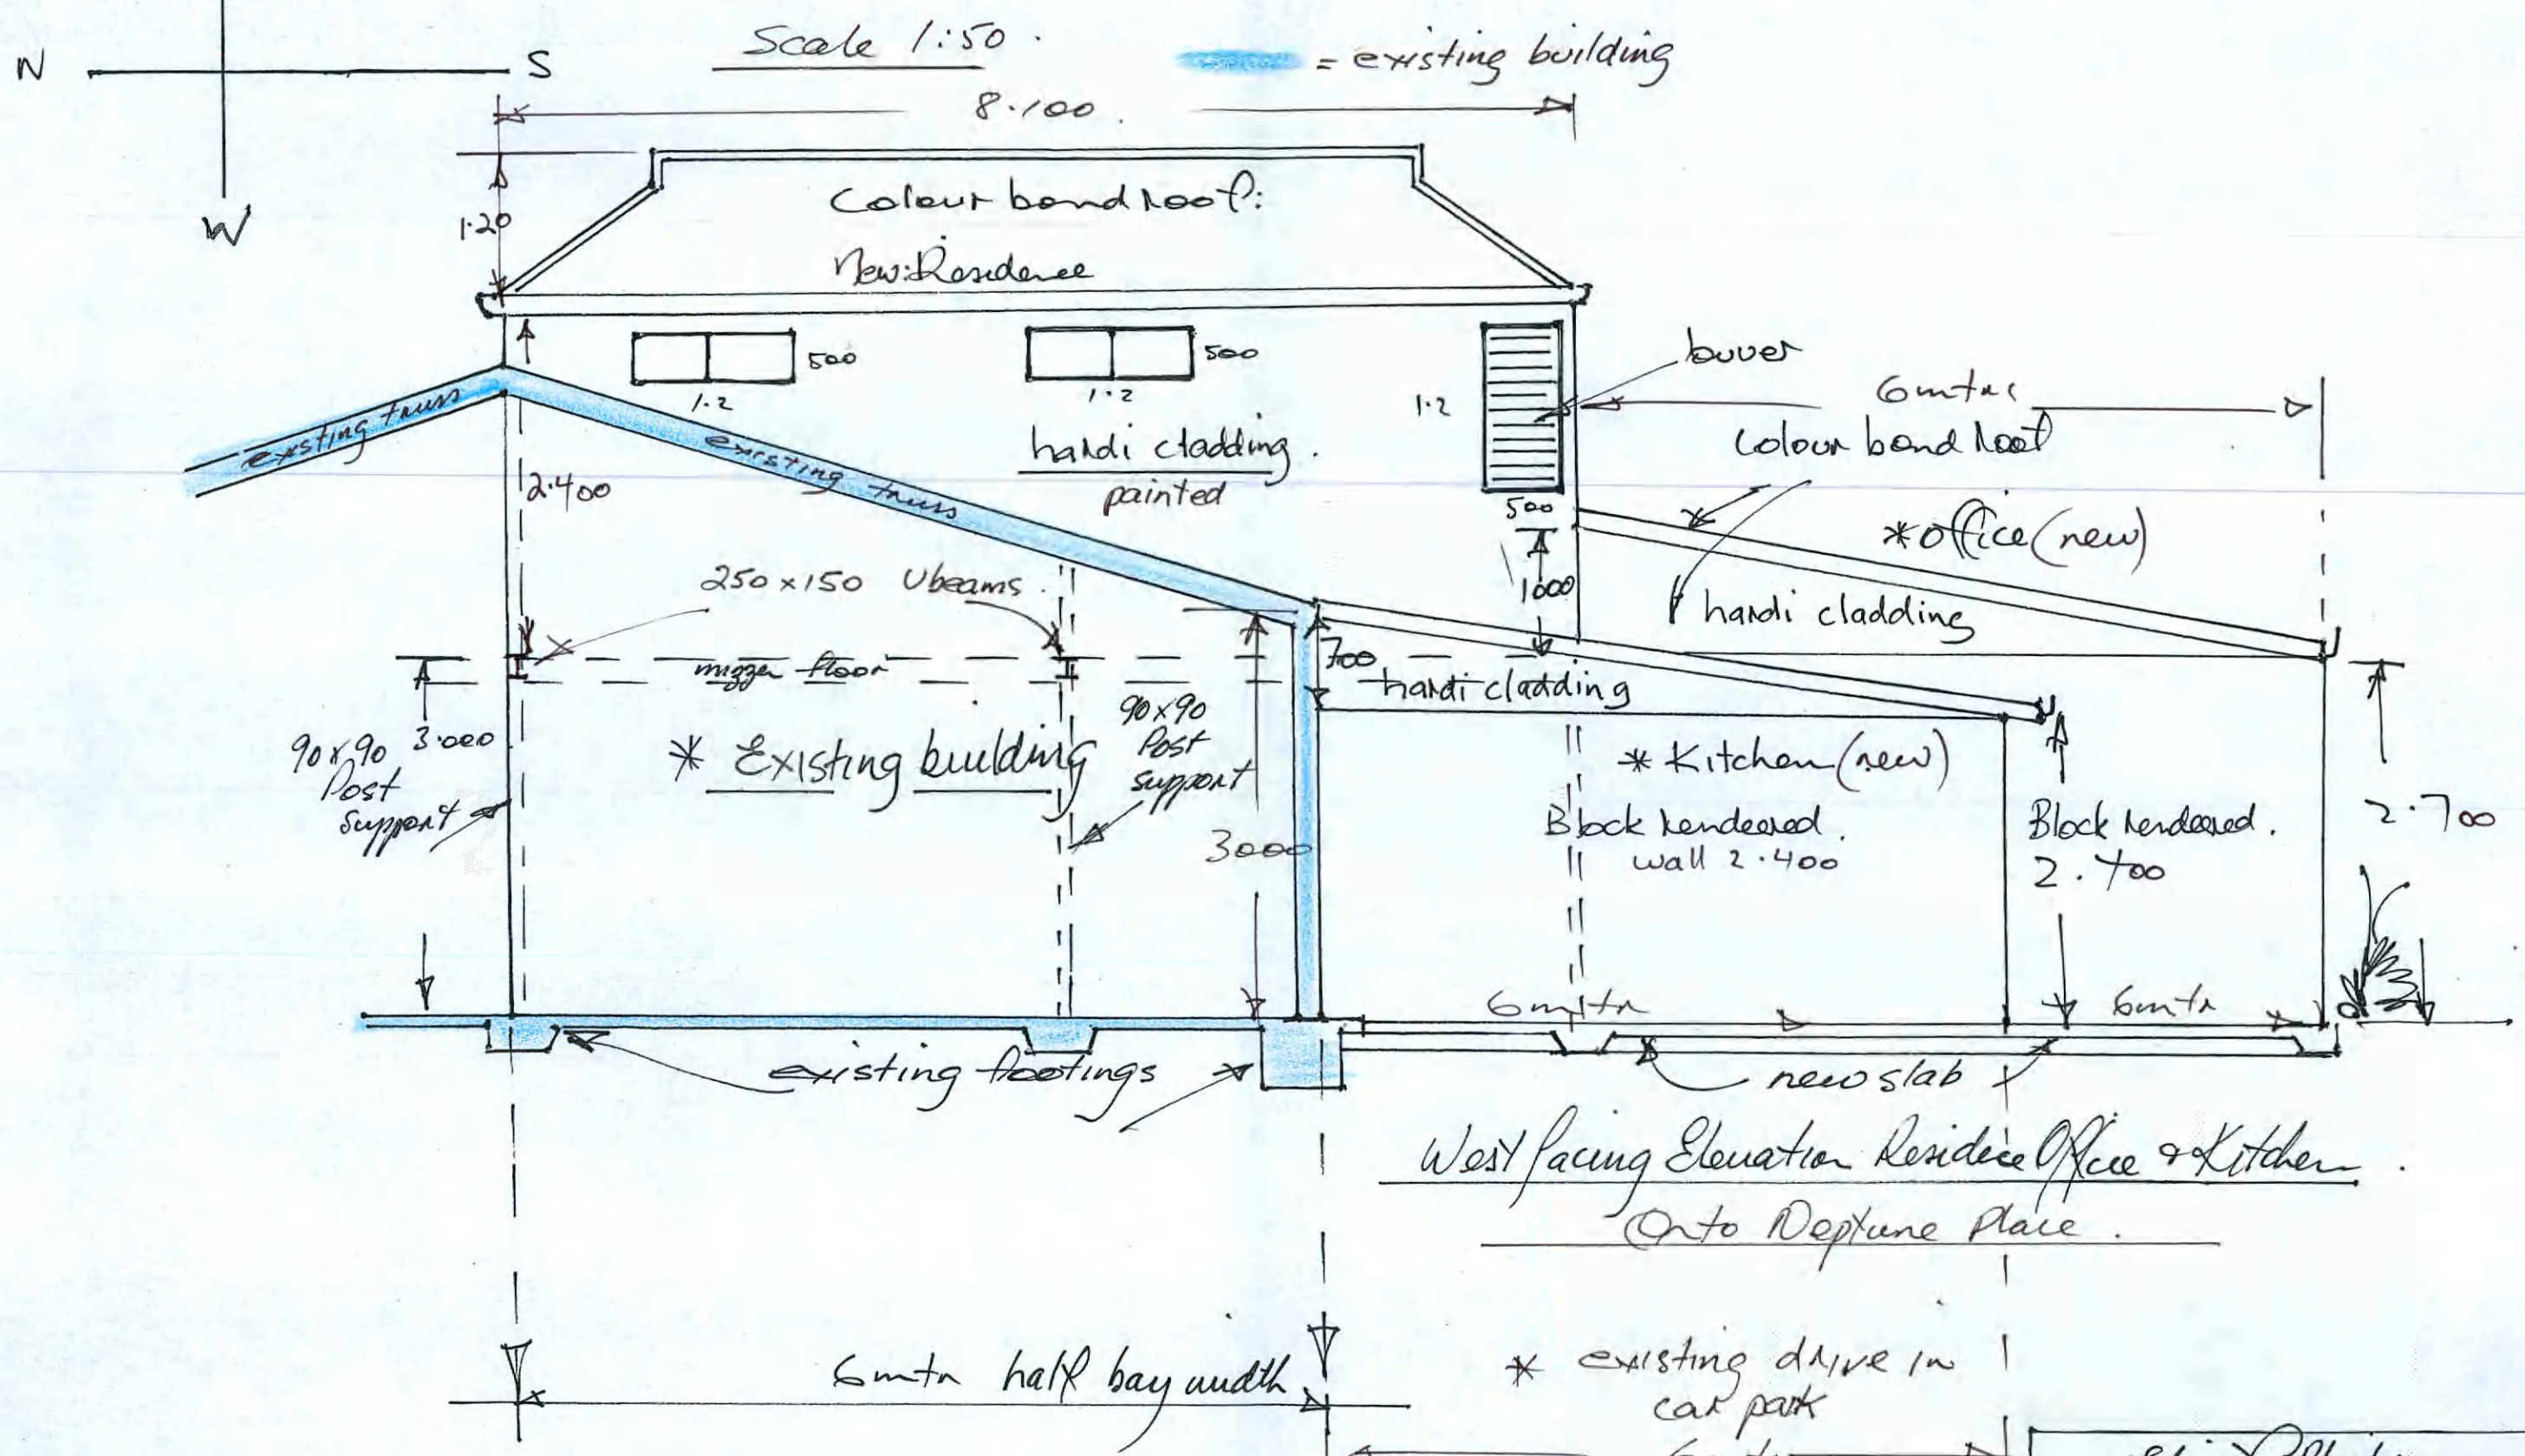 Scale 1:50.
= existing building
N
S
W
8.100
1.20
Colour bond Roof:
New: Residence
500
1.2
500
1.2
1.2
500
louver
6 mtrs
colour bond Roof
existing truss
existing truss
2.400
hardi cladding.
painted
* office (new)
hardi cladding
1000
250 x 150 U beams.
mizza floor
700
hardi cladding
90x90
Post
support
3.000
* Existing building
90x90
Post
support
3000
* Kitchen (new)
Block Rendeered.
wall 2.400
Block Rendeered.
2.400
2.700
6 mtr
6 mtr
existing footings
new slab
West facing Elevation Residece Office & Kitchen.
Onto Neptune Place.
6 mtr half bay width
* existing drive in
car park